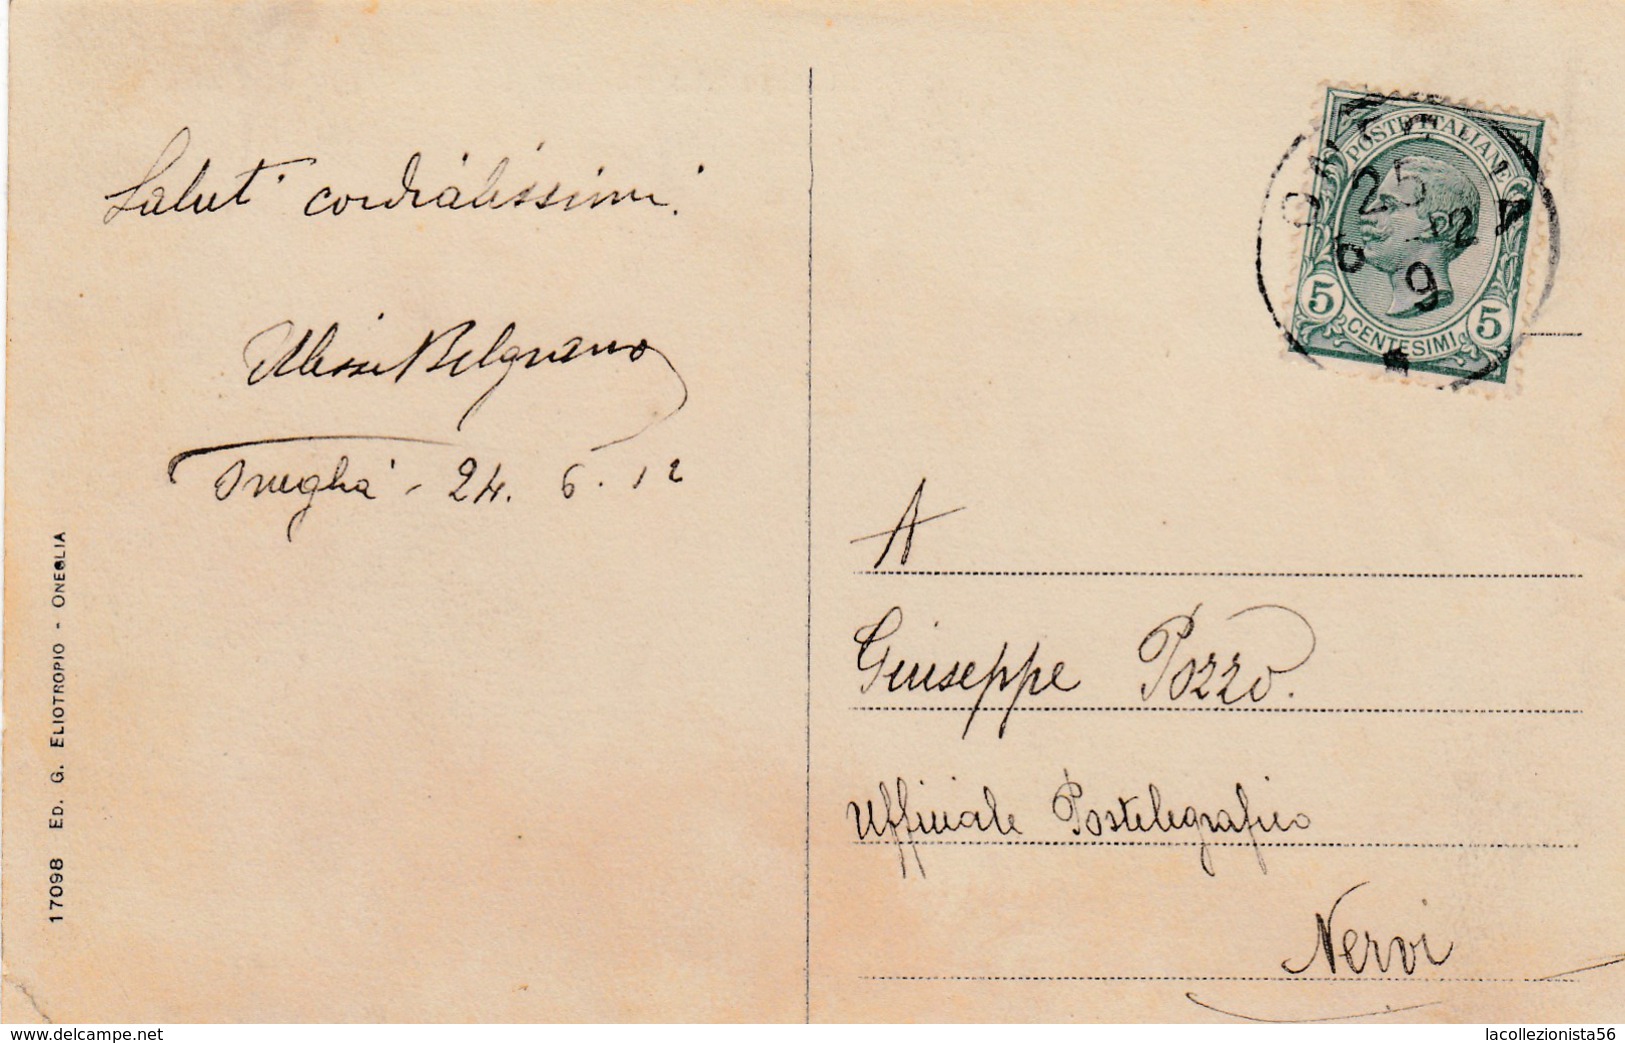 Saluti cordialissimi.
Ulisse Belgrano
Oneglia - 24. 6. 12
17098 ED. G. ELIOTROPIO - ONEGLIA
POSTE ITALIANE
25
6 12
9
5 CENTESIMI 5
A
Giuseppe Pozzo.
Ufficiale Postelegrafico
Nervi
www.delcampe.net
lacollezionista56